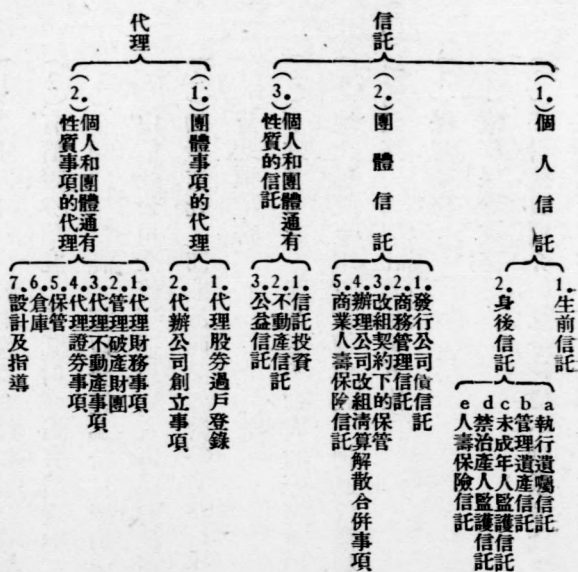 信託
(1.)個人信託
1.生前信託
2.身後信託
a執行遺囑信託
b管理遺產信託
c未成年人監護信託
d禁治產人監護信託
e人壽保險信託
(2.)團體信託
1.發行公司債信託
2.商務管理信託
3.改組契約下的保管
4.辦理公司改組清算解散合併事項
5.商業人壽保險信託
(3.)個人和團體通有性質的信託
1.信託投資
2.不動產信託
3.公益信託
代理
(1.)團體事項的代理
1.代理股券過戶登錄
2.代辦公司創立事項
(2.)個人和團體通有性質事項的代理
1.代理財務事項
2.管理破產財團
3.代理不動產事項
4.代理證券事項
5.保管
6.倉庫
7.設計及指導